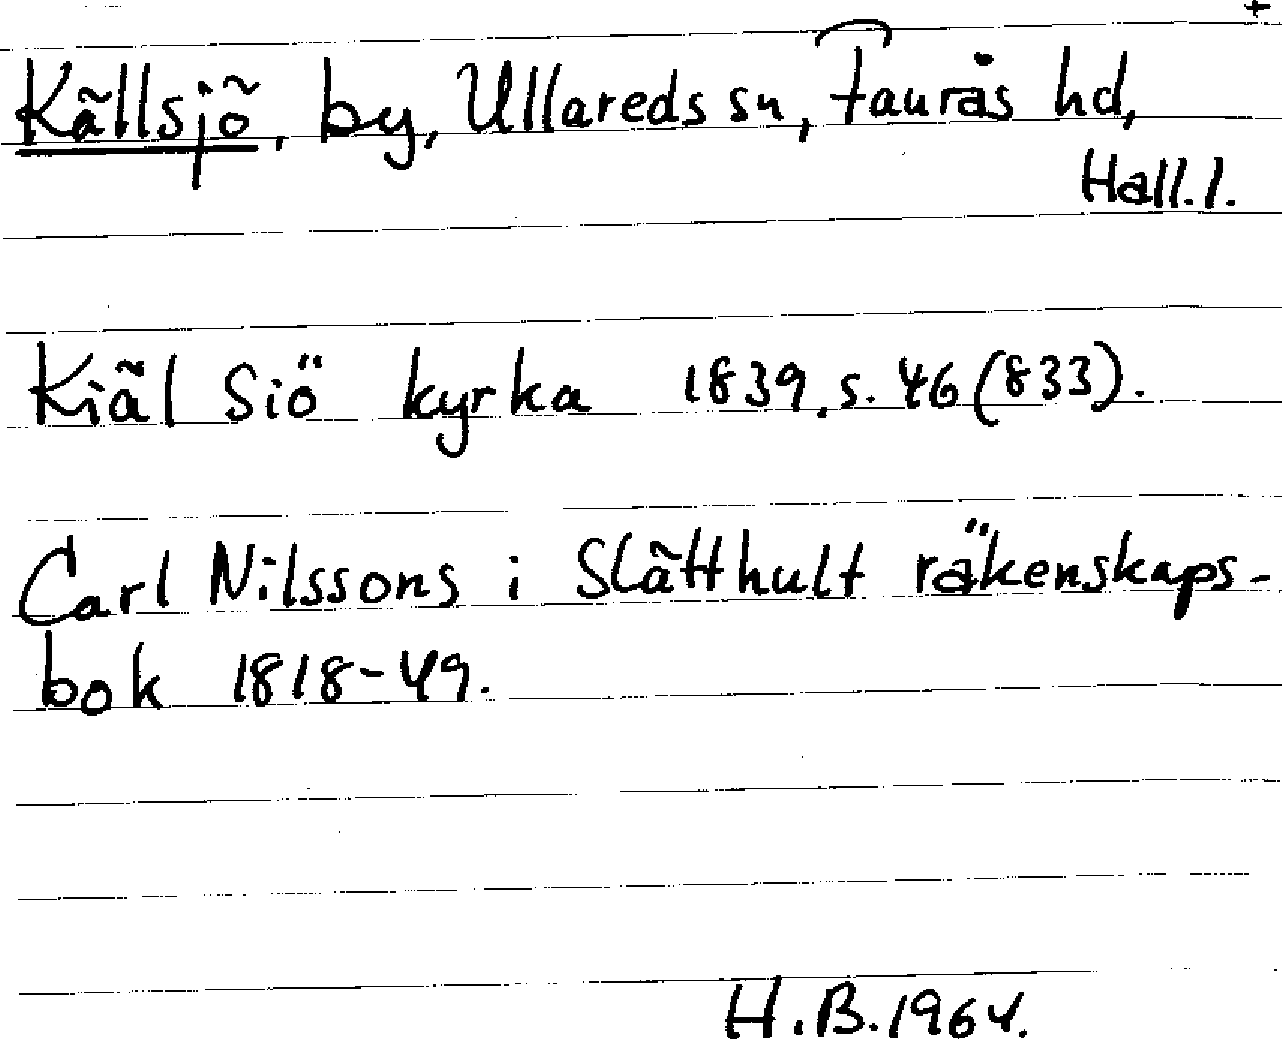 +
Källsjö, by, Ullareds sn, Faurås hd,
Hall. l.
Kiäl Siö kyrka 1839, s. 46 (833).
Carl Nilssons i Slätthult räkenskaps-
bok 1818-49.
H.B. 1964.